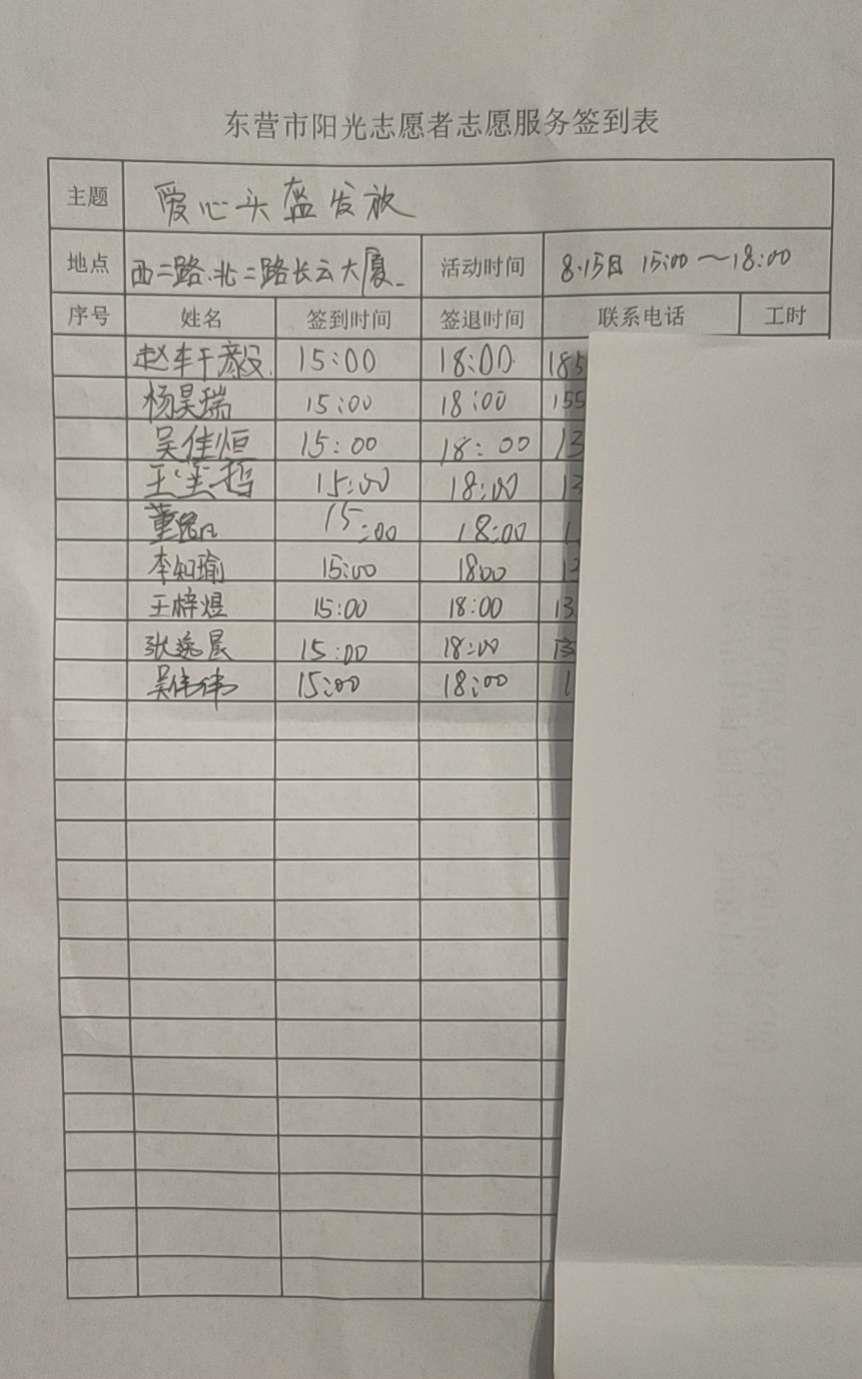 东营市阳光志愿者志愿服务签到表
主题 爱心头盔发放
地点 西二路.北二路长云大厦 活动时间 8.15日 15:00~18:00
序号 姓名 签到时间 签退时间 联系电话 工时
15:00 18:00 185
杨昊瑞 15:00 18:00 155
吴佳恒 15:00 18:00 13
15:00 18:00 13
15:00 18:00 1
李知瑜 15:00 1800 13
王梓煜 15:00 18:00 13
张逸晨 15:00 18:00
吴伟伟 15:00 18:00 1